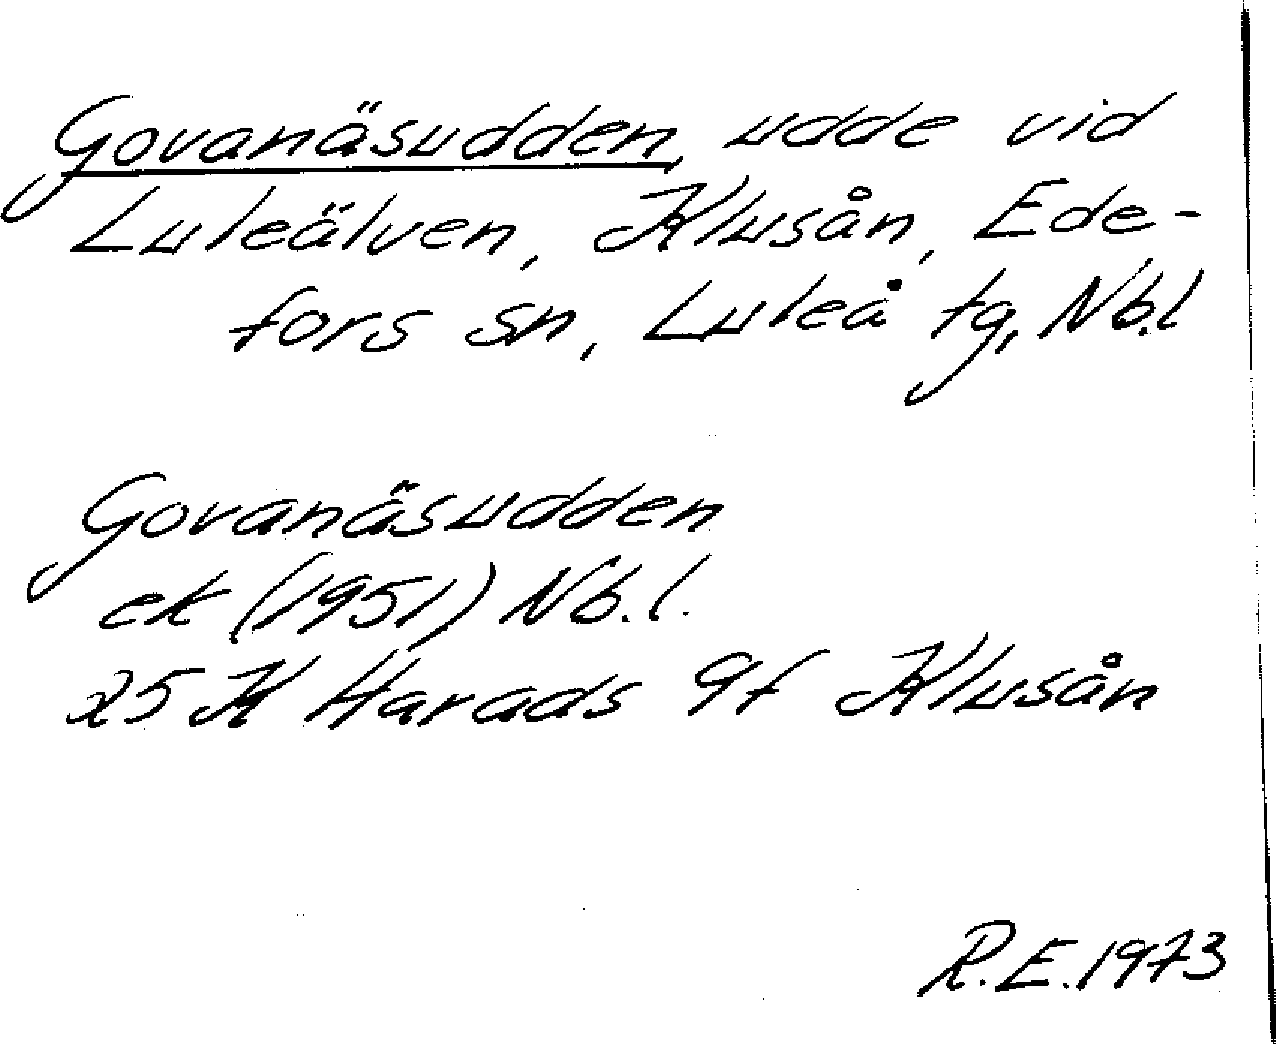 Govanäsudden, udde vid
Luleälven, Klusån, Ede-
fors sn, Luleå tg, Nb.l
Govanäsudden
ek (1951) Nb.l.
25 K Harads 9f Klusån
R.E. 1973